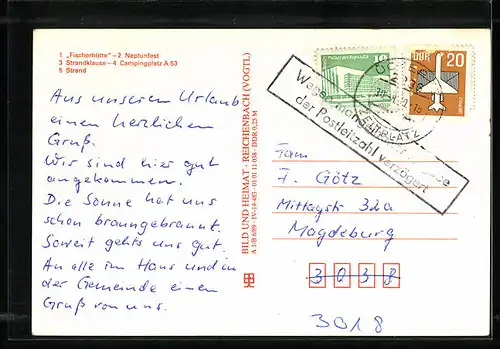 1 „Fischerhütte“ – 2 Neptunfest
3 Strandklause – 4 Campingplatz A 63
5 Strand
Aus unserem Urlaub
einen herzlichen
Gruß.
Wir sind hier gut
angekommen.
Die Sonne hat uns
schon braungebrannt.
Soweit gehts uns gut.
An alle im Haus und in
der Gemeinde einen
Gruß von uns.
BILD UND HEIMAT · REICHENBACH (VOGTL)
A 1/B 6/89 · IV-14-483 · 01 01 11 038 · DDR 0,25 M
10
DDR 20
ELTPLATZ
der Postleitzahl verzögert
Fam
F. Götz
Mittagstr 32a
Magdeburg
3038
3018